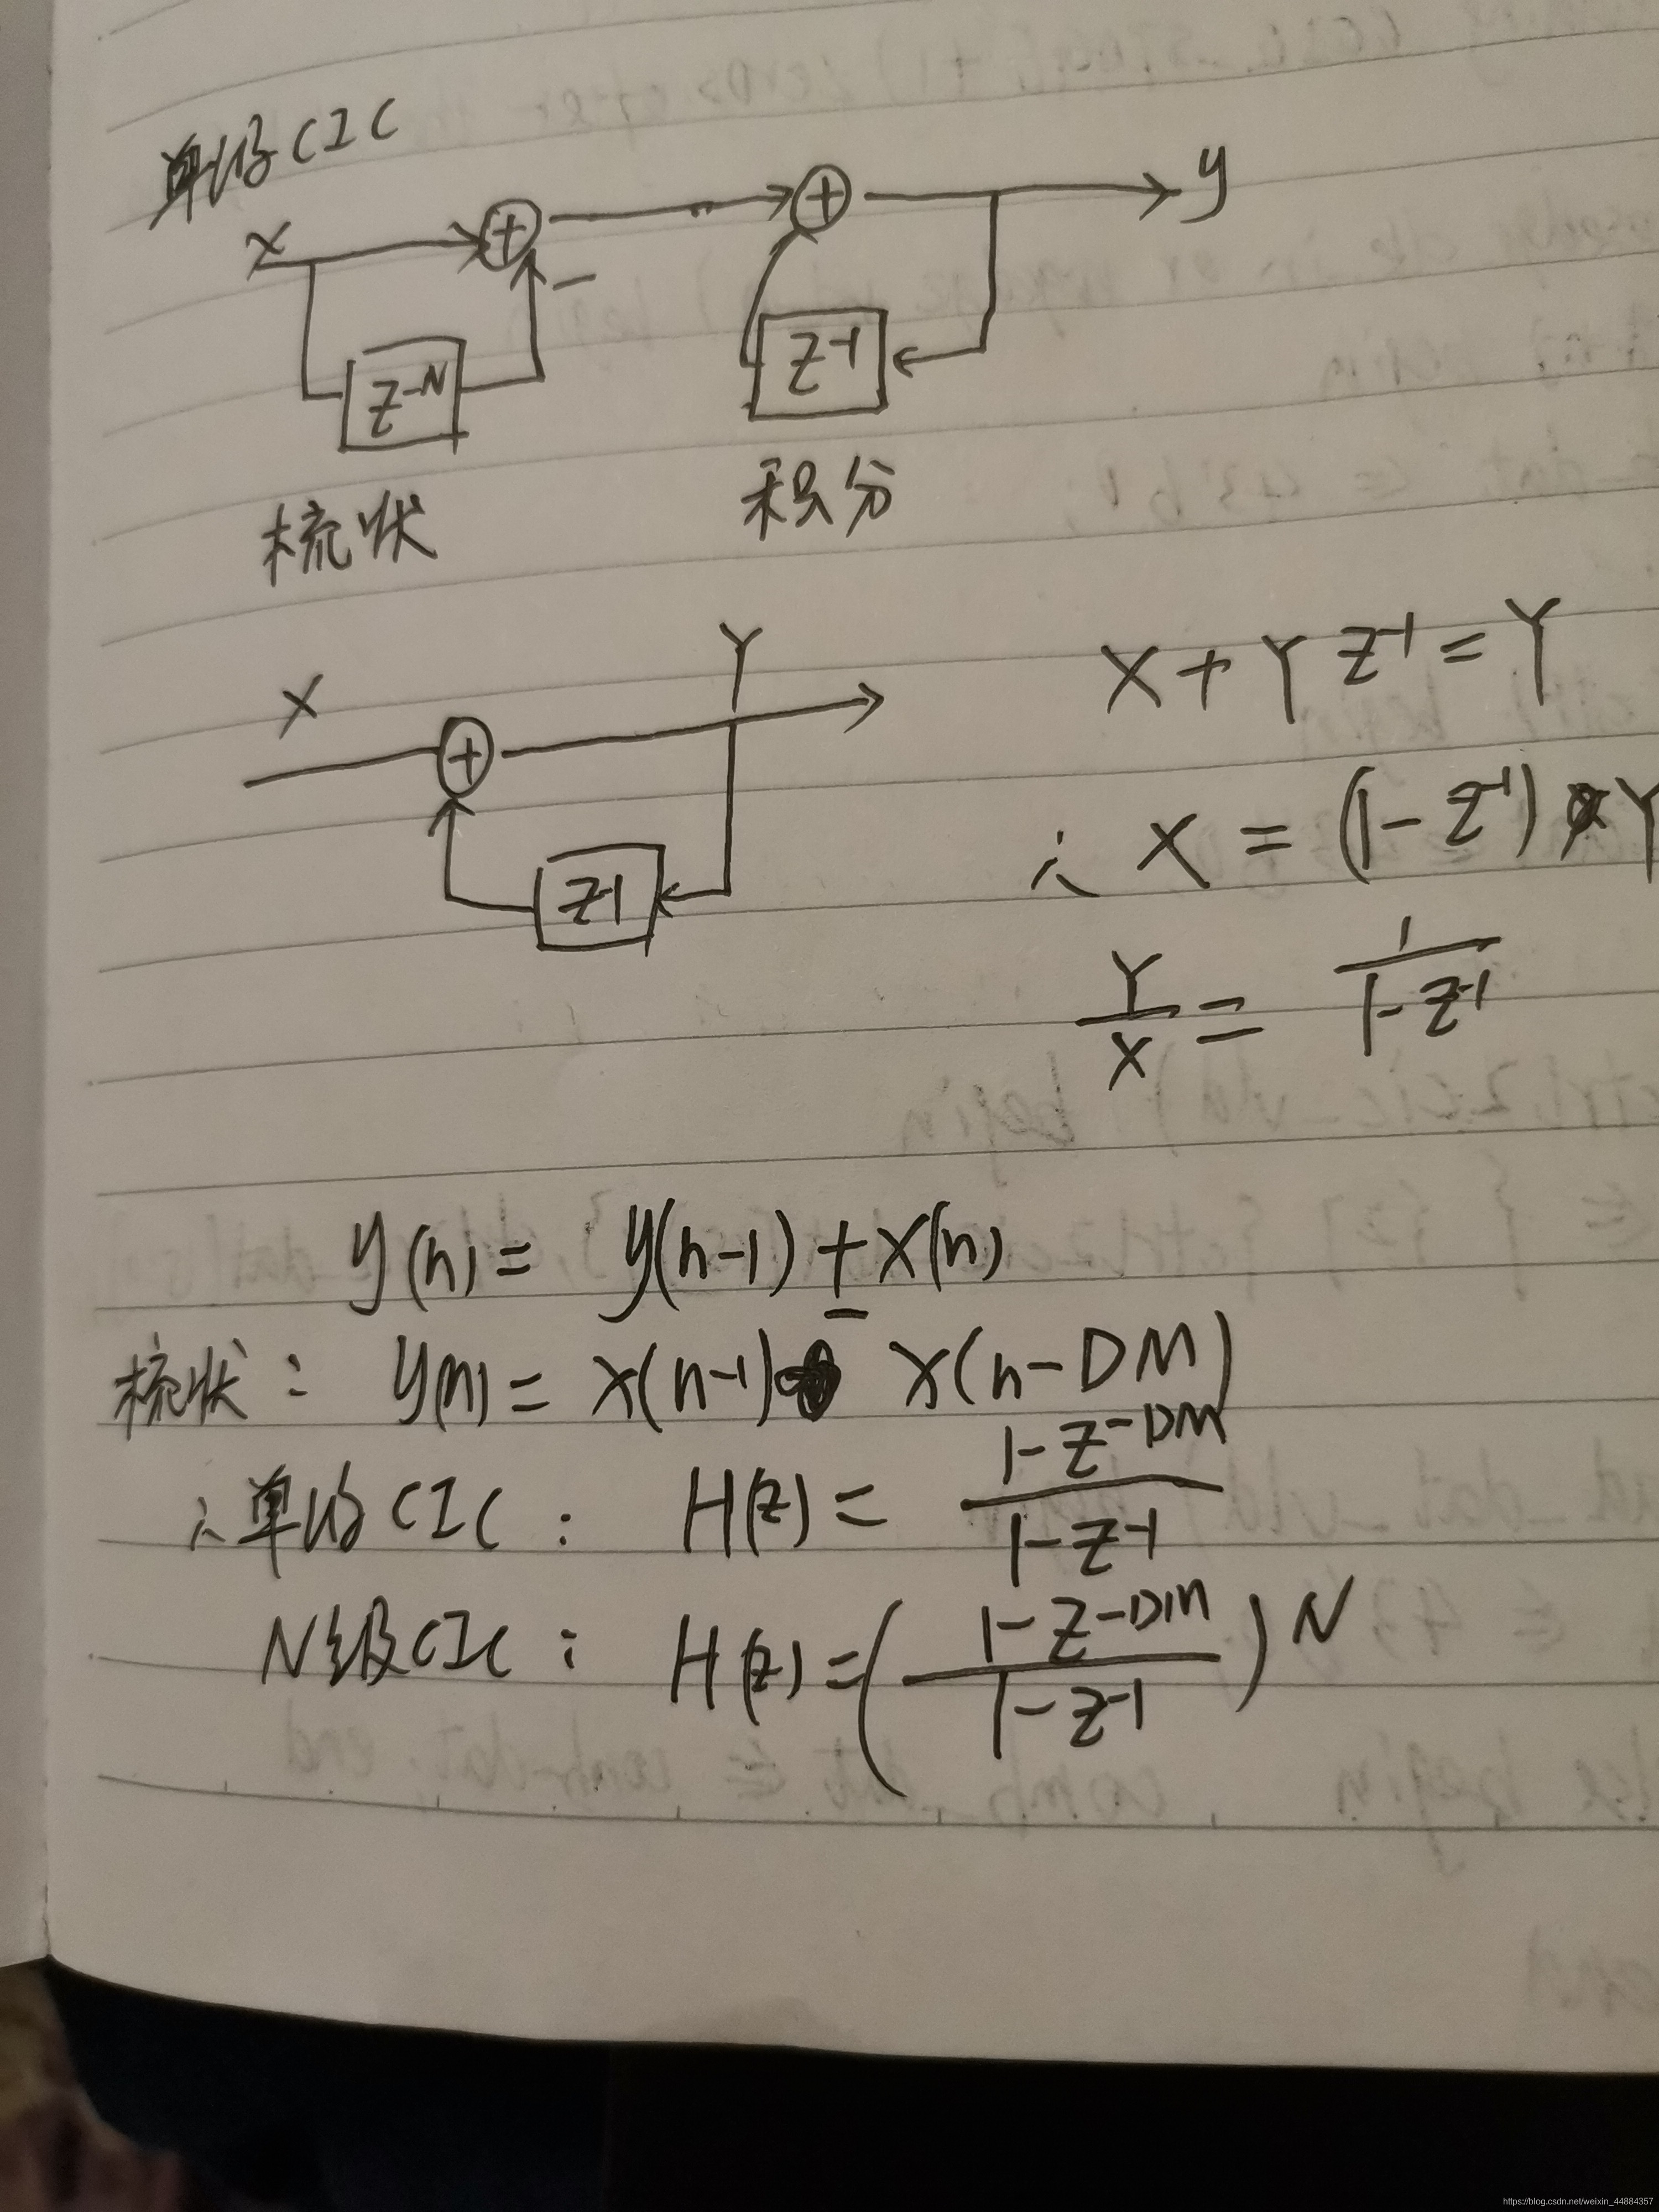 单的CIC
X + + y
−
Z-N Z-1
梳状 积分
X Y
+
Z-1
X + Y Z-1 = Y
∴ X = (1 - Z-1) Y
Y/X = 1/(1 - Z-1)
y(n) = y(n-1) + X(n)
梳状: y(n) = x(n-1) − x(n-DM)
∴ 单的CIC: H(z) = (1 - Z-DM)/(1 - Z-1)
N级CIC: H(z) = ((1 - Z-DM)/(1 - Z-1))N
https://blog.csdn.net/weixin_44884357